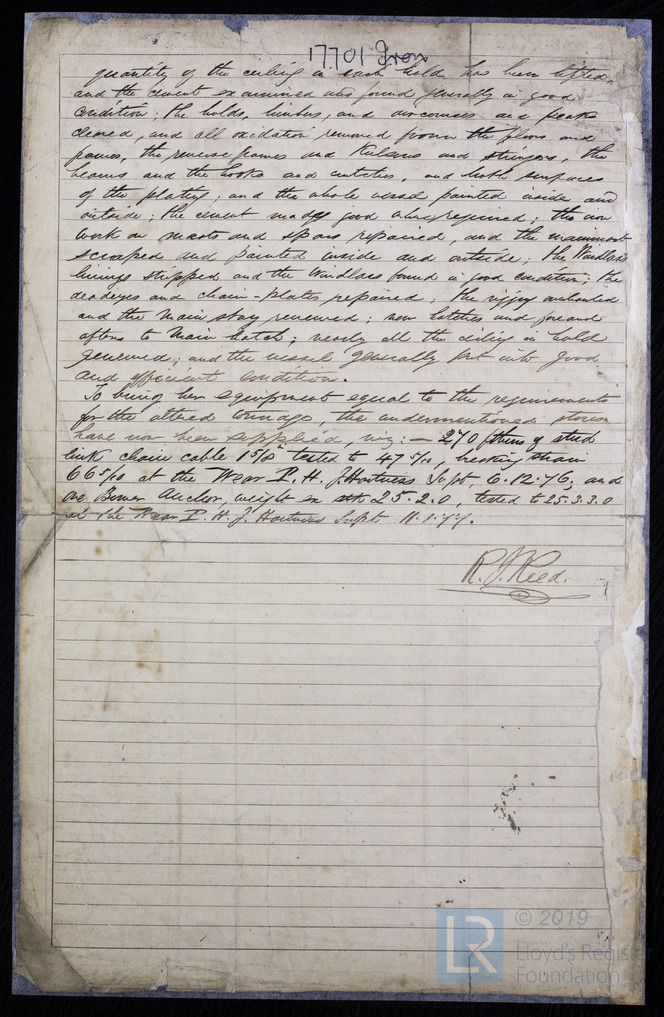 17701 Iron
quantity of the ceiling in each hold has been lifted,
and the cement examined and found generally in good
condition; the holds, limbers, and air courses and peaks
cleared, and all oxidation removed from the floors and
frames, the reverse frames and Keelsons and stringers, the
beams and the hooks and crutches, and both surfaces
of the plating, and the whole vessel painted inside and
outside; the cement made good where required; the iron
work on masts and spars repaired, and the mainmast
scraped and painted inside and outside; the Windlass
linings stripped and the Windlass found in good condition; the
deadeyes and chain-plates repaired; the rigging overhauled
and the main stay renewed; new hatches and fore and
afters to main hatch; nearly all the ceiling in hold
renewed; and the vessel generally put into good
and efficient condition.
To bring her equipment equal to the requirements
for the altered tonnage, the undermentioned stores
have now been supplied, viz: — 270 fthms of stud
link chain cable 1 5/8 tested to 47 5/10, breaking strain
66 5/10 at the Wear P. H. J. Hartness Supt 6.12.76, and
one Bower Anchor, weight ex stk 25.2.0, tested to 25.3.3.0
at the Wear P. H. J. Hartness Supt 11.1.77.
R. J. Reed.
LR
© 2019
Lloyd's Register
Foundation